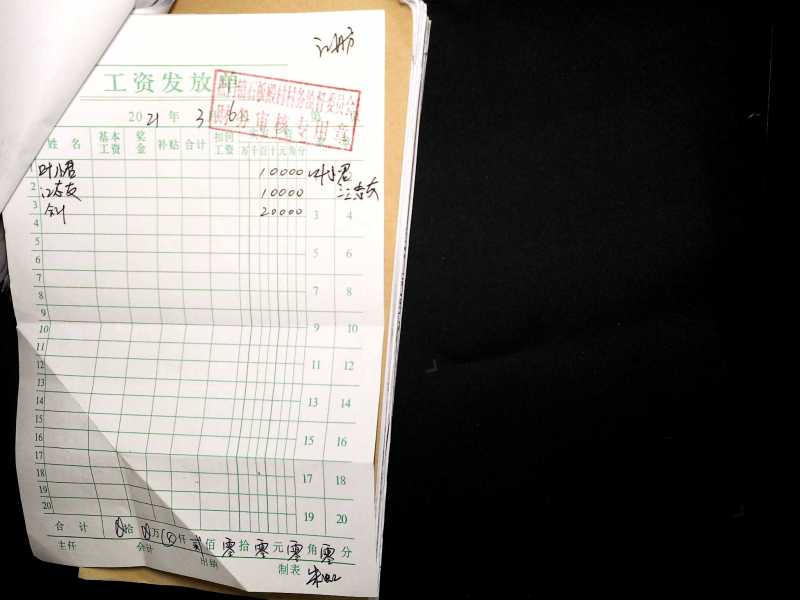 工资发放单
2021年 3 6
村务监督委员会
审核专用章
姓名 基本工资 奖金 补贴 合计 扣回工资 万千百十元角分
1 叶小君 10000 叶小君
2 江志友 10000 江志友
3 合计 20000 3 4
4
5 5 6
6
7 7 8
8
9 9 10
10
11 11 12
12
13 13 14
14
15 15 16
16
17 17 18
18
19 19 20
20
合计 拾 万 仟 贰佰零拾零元零角零分
主任 会计 出纳 制表